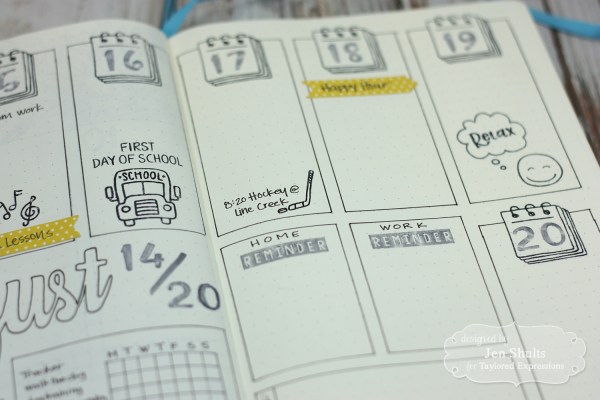 16
17
18
19
m work
Happy Hour
FIRST
DAY OF SCHOOL
SCHOOL
Relax
8:20 Hockey @
Line Creek
Lessons
HOME
REMINDER
WORK
REMINDER
20
ust 14/20
MTWTFSS
Tracker
designed by
Jen Shults
for Taylored Expressions